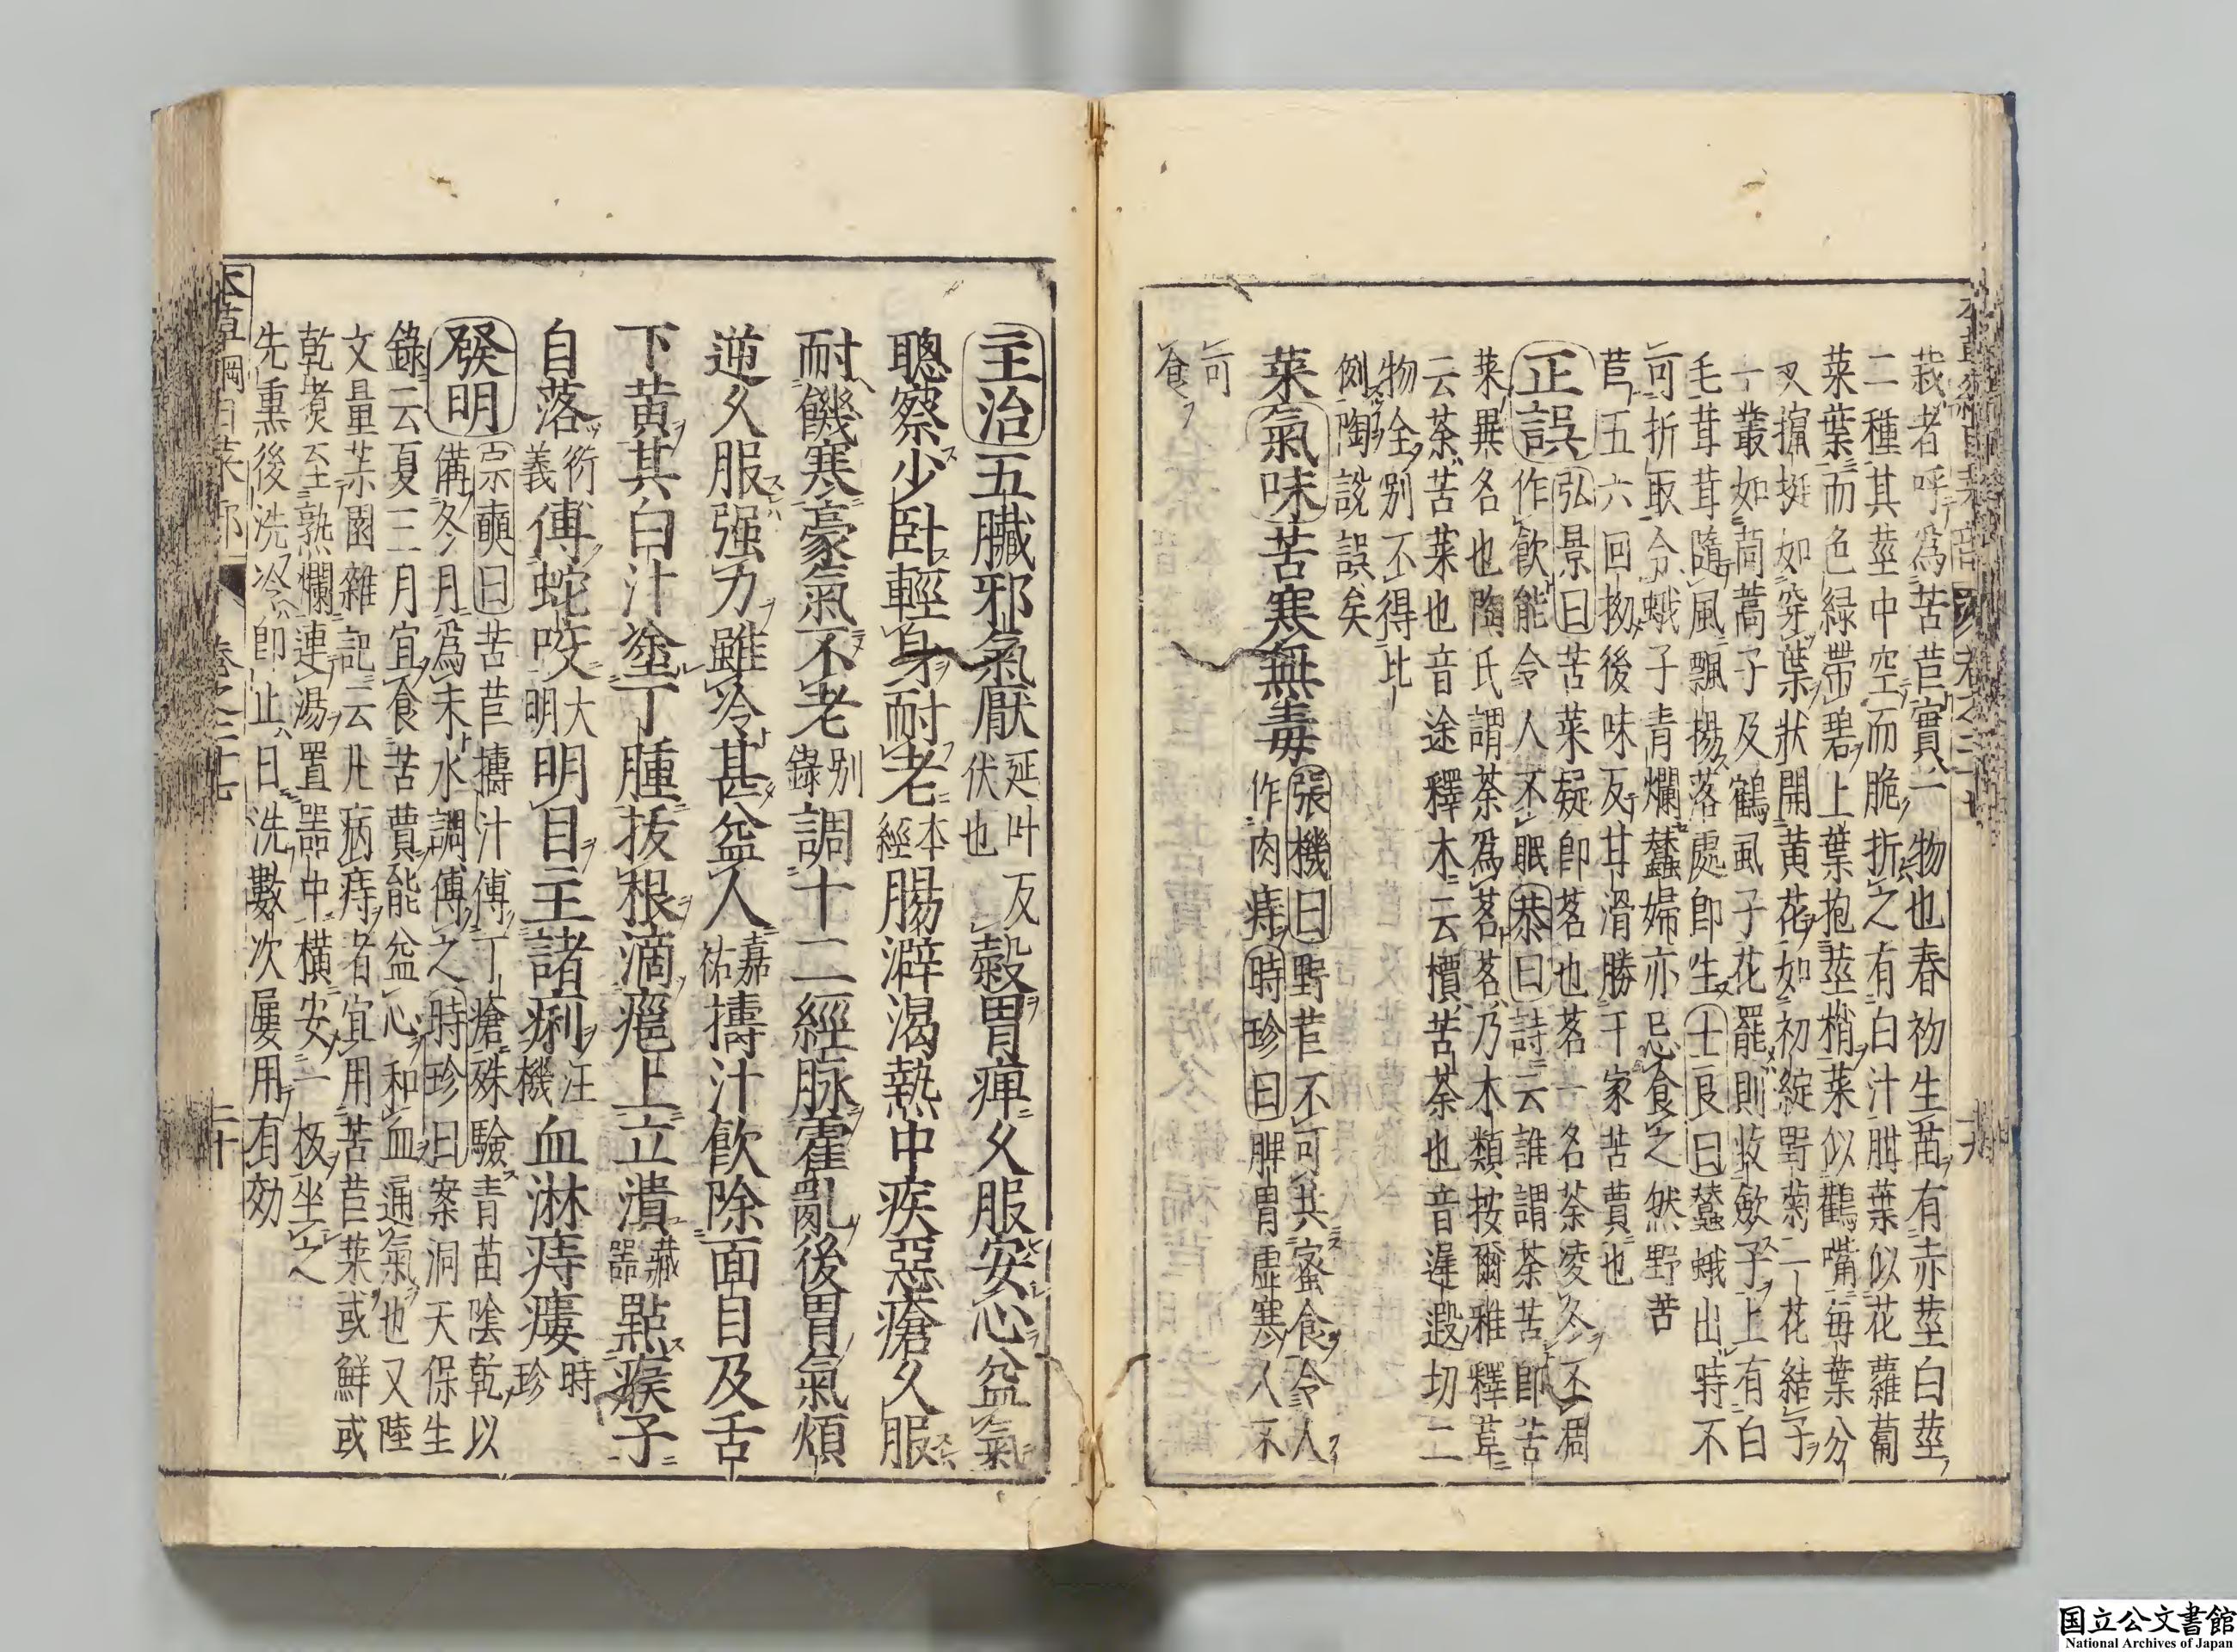 栽者呼為苦苣實一物也春初生苗有赤莖白莖
二種其莖中空而脆折之有白汁胼葉似花蘿蔔
菜葉而色綠帶碧上葉抱莖梢葉似鸛嘴每葉分
叉攛挺如穿葉狀開黃花如初綻野菊一花結子
一叢如茼蒿子及鶴虱子花罷則收斂子上有白
毛茸茸隨風飄揚落處即生士良曰蠶蛾出時不
可折取令蛾子青爛蠶婦亦忌食之然野苦
苣五六回拗後味反甘滑勝于家苦蕒也
正誤弘景曰苦菜疑即茗也茗一名荼凌冬不凋
作飲能令人不眠恭曰詩云誰謂荼苦即苦
菜異名也陶氏謂荼為茗茗乃木類按爾雅釋草
云荼苦菜也音途釋木云檟苦荼也音遲遐切二
物全別不得比
例陶說誤矣
菜氣味苦寒無毒張機曰野苣不可共蜜食令人
作肉痔時珍曰脾胃虛寒人不
可
食
主治五臟邪氣厭延叶反
伏也穀胃痺久服安心益氣
聰察少臥輕身耐老本
經腸澼渴熱中疾惡瘡久服
耐饑寒豪氣不老別
錄調十二經脉霍亂後胃氣煩
逆久服强力雖冷甚益人嘉
祐擣汁飲除面目及舌
下黃其白汁塗丁腫拔根滴癰上立潰藏
器點瘊子
自落衍
義傅蛇咬大
明明目主諸痢汪
機血淋痔瘻時
珍
發明宗奭曰苦苣擣汁傅丁瘡殊驗青苗陰乾以
備冬月為末水調傅之時珍曰案洞天保生
錄云夏三月宜食苦蕒能益心和血通氣也又陸
文量菜園雜記云凡病痔者宜用苦苣菜或鮮或
乾煑至熟爛連湯置器中橫安一板坐之
先熏後洗冷即止日洗數次屢用有効
本草綱目菜部 卷之二十七 二十